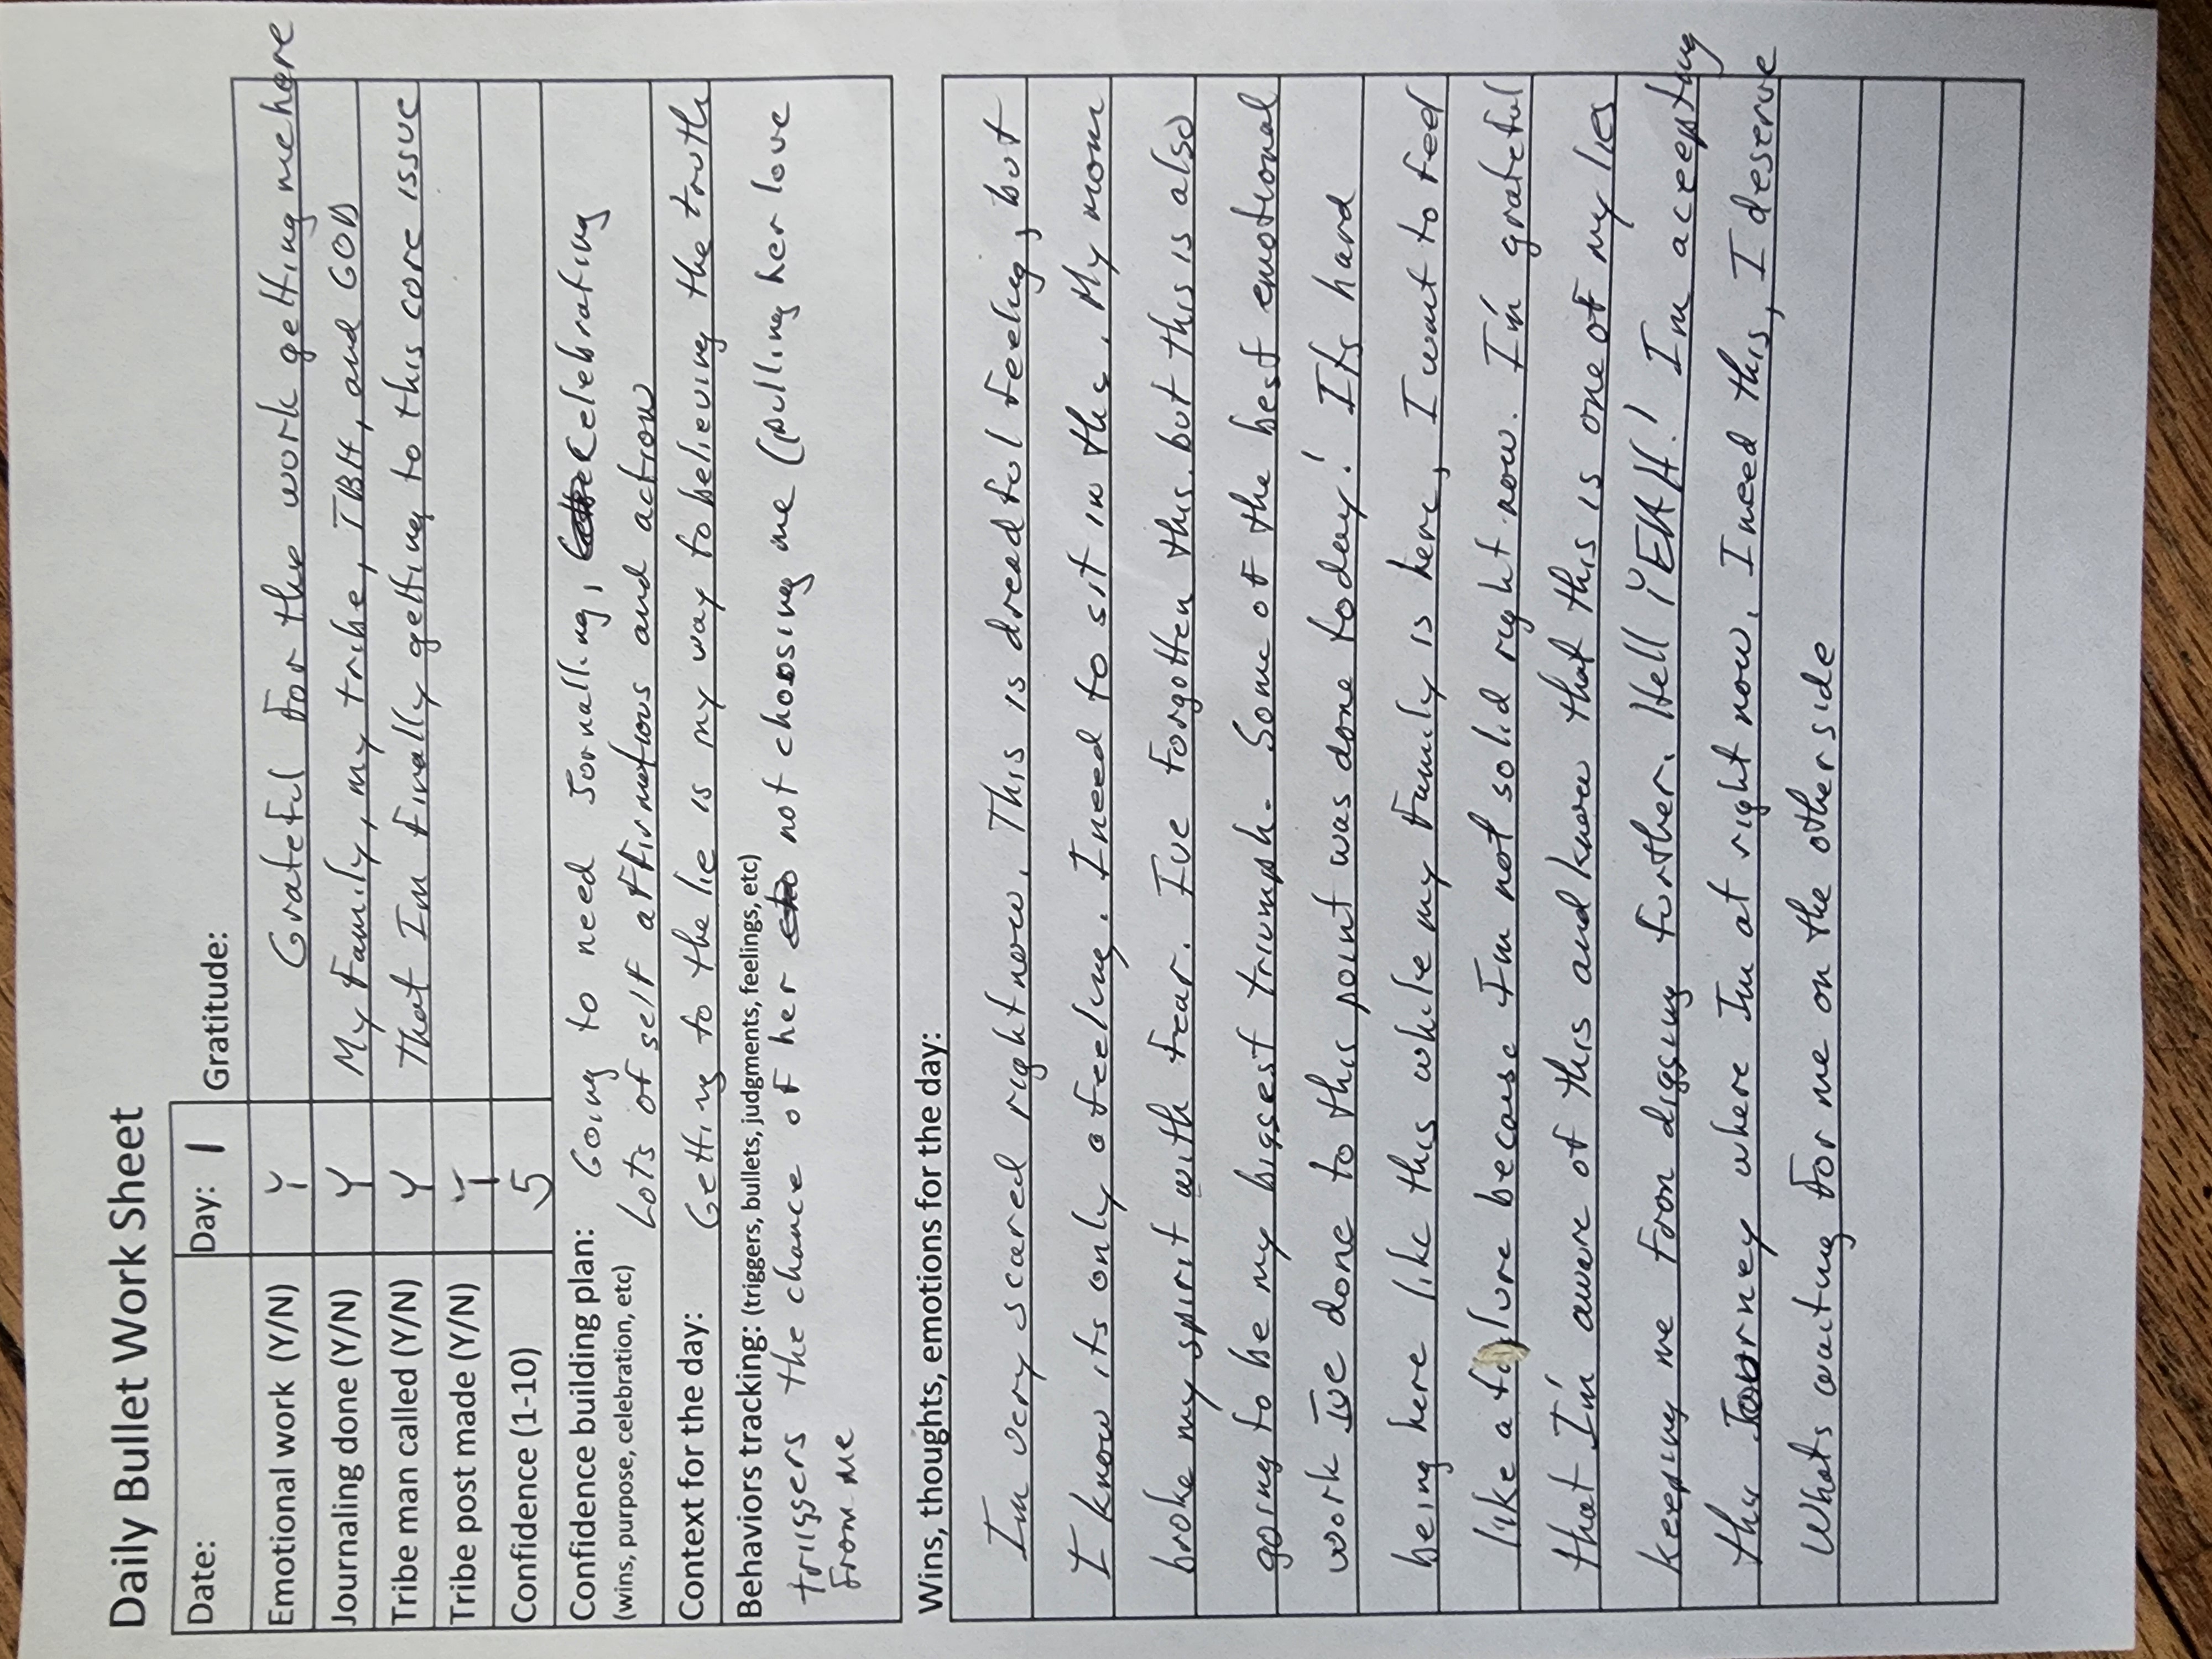 Daily Bullet Work Sheet
Date: Day: 1 Gratitude:
Emotional work (Y/N) Y Grateful for the work getting me here
Journaling done (Y/N) Y My family, my tribe, TBH, and GOD
Tribe man called (Y/N) Y That Im finally getting to this core issue
Tribe post made (Y/N) Y
Confidence (1-10) 5
Confidence building plan: Going to need Jornalling, Celebrating
(wins, purpose, celebration, etc) Lots of self affirmations and action
Context for the day: Getting to the lie is my way to believing the truth
Behaviors tracking: (triggers, bullets, judgments, feelings, etc)
triggers the chance of her not choosing me (pulling her love
from me
Wins, thoughts, emotions for the day:
Im very scared right now. This is dreadful feeling, but
I know its only a feeling. I need to sit in this. My mom
broke my spirit with fear. Ive forgotten this. but this is also
going to be my biggest triumph. Some of the best emotional
work Ive done to this point was done today! Its hard
being here like this while my family is here, I want to feel
like a failure because Im not solid right now. I'm grateful
that I'm aware of this and know that this is one of my lies
keeping me from digging further. Hell YEAH! Im accepting
this Journey where Im at right now. I need this, I deserve
Whats waiting for me on the otherside